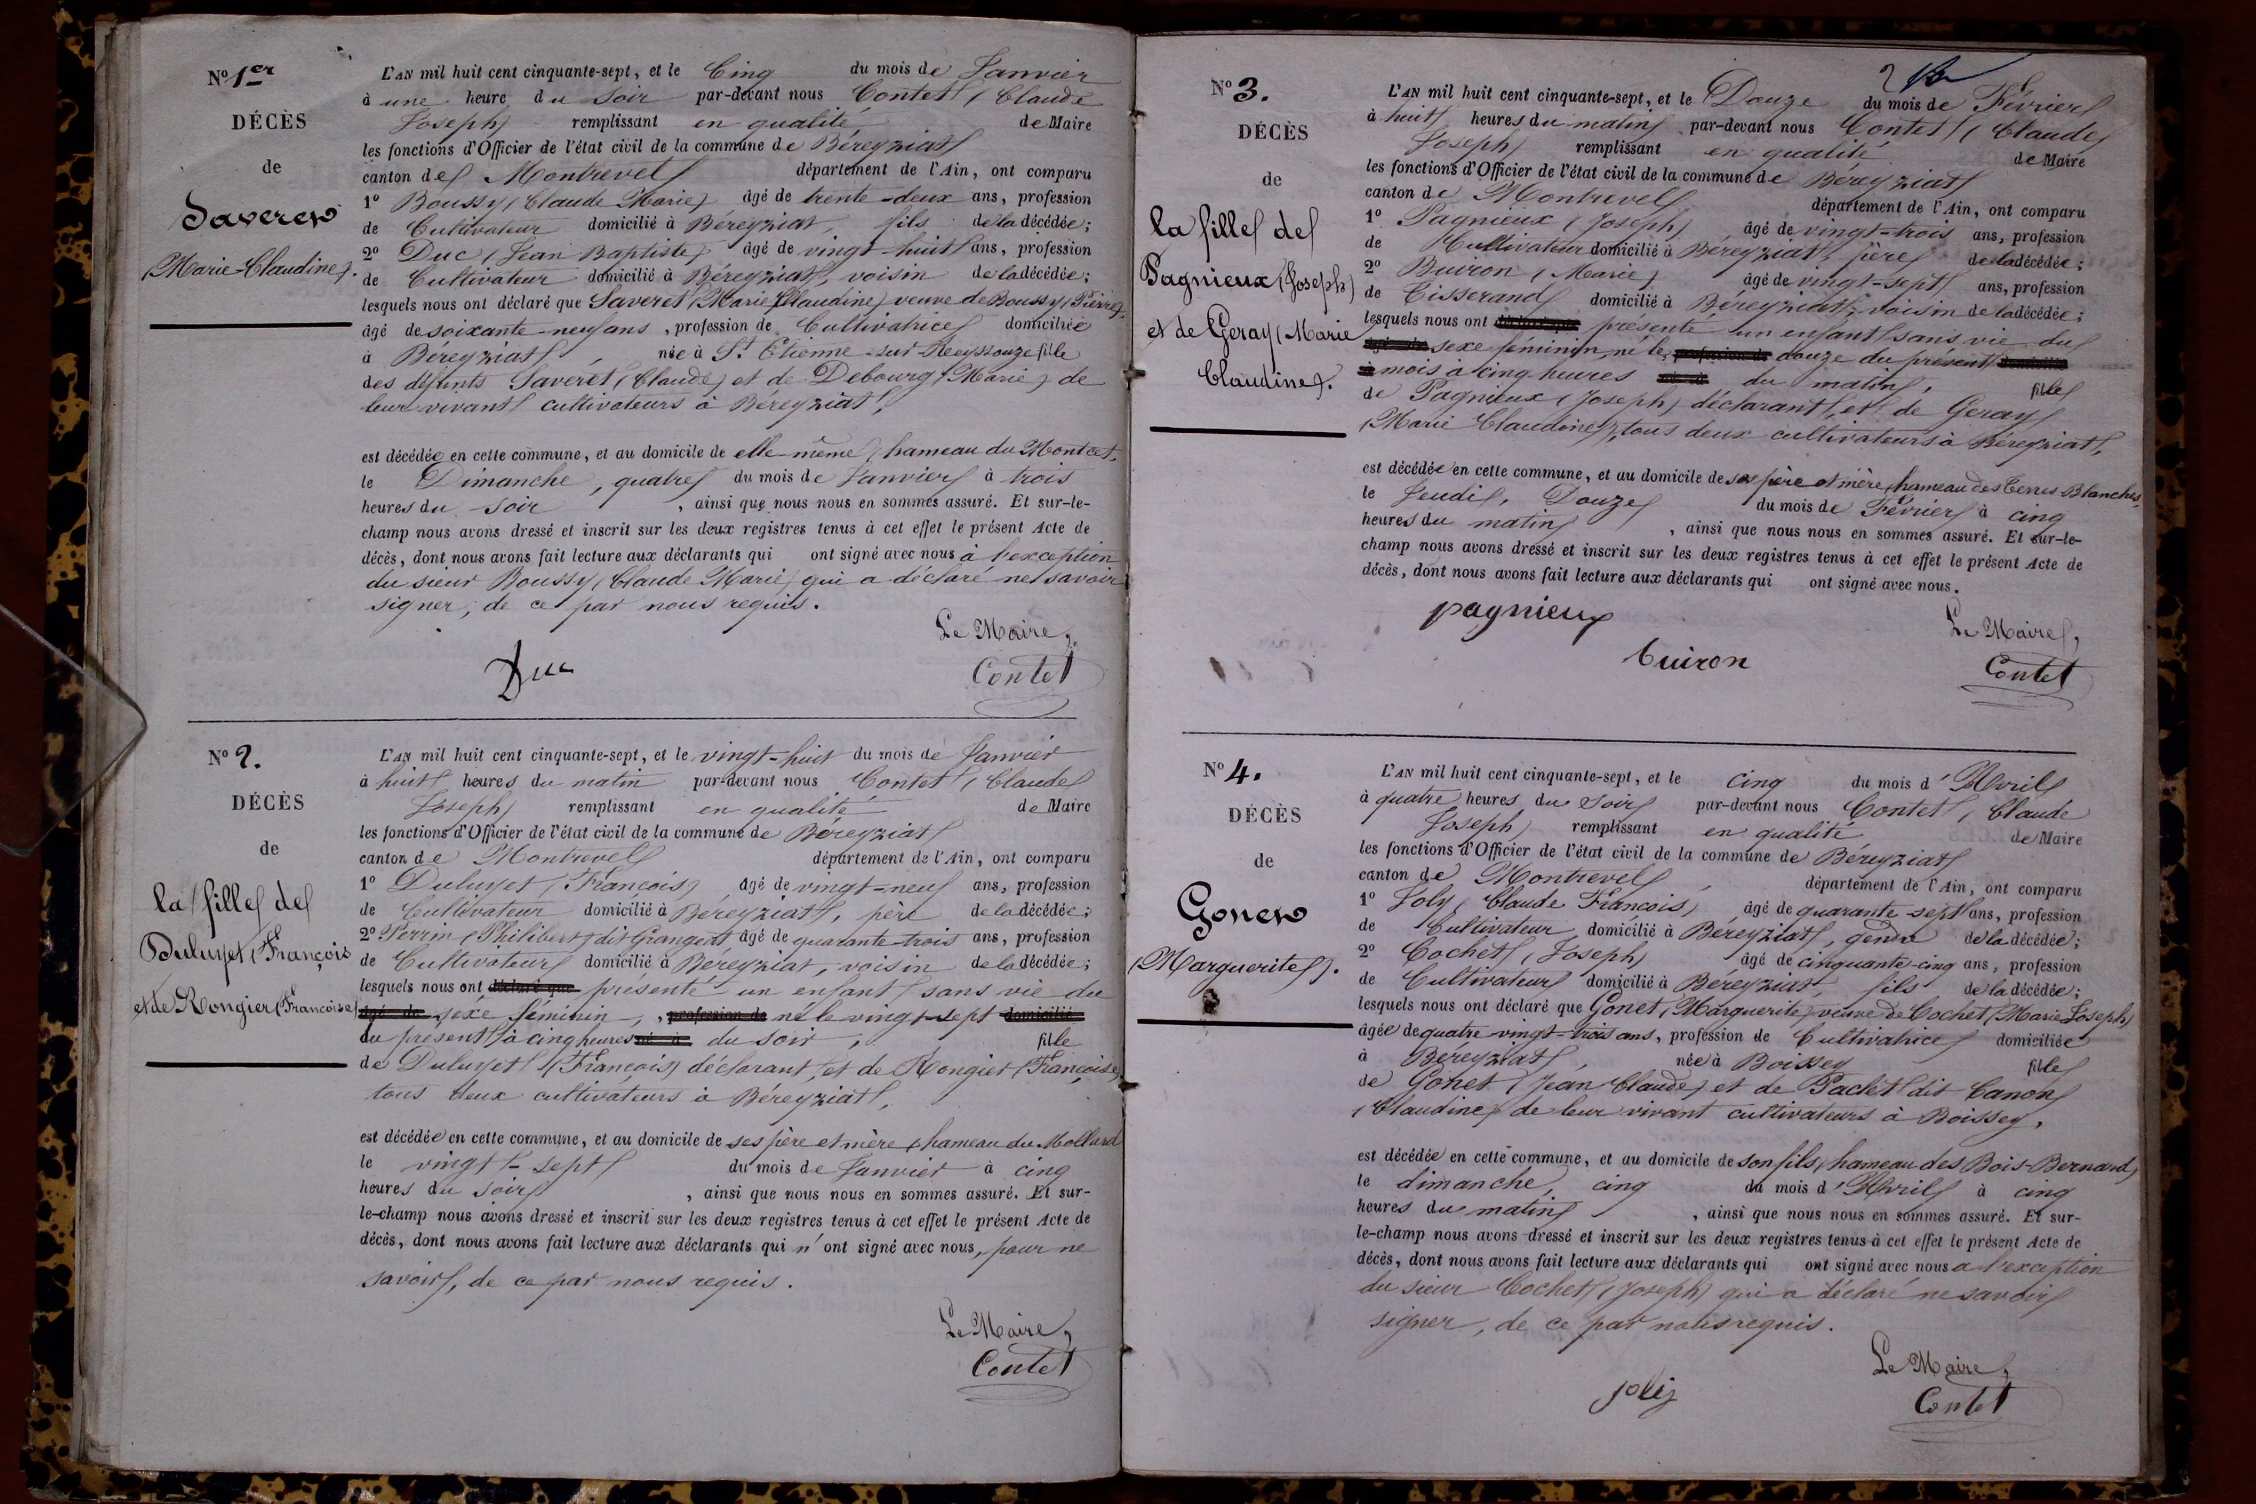 No 1er
DÉCÈS
de
Saveret
(Marie-Claudine).
L'AN mil huit cent cinquante-sept, et le Cinq du mois de Janvier
à une heure du soir par-devant nous Contet (Claude
Joseph) remplissant en qualité de Maire
les fonctions d'Officier de l'état civil de la commune de Béreyziat
canton de Montrevel département de l'Ain, ont comparu
1o Boussy (Claude Marie) âgé de trente-deux ans, profession
de Cultivateur domicilié à Béreyziat, fils de la décédée;
2o Duc (Jean Baptiste) âgé de vingt-huit ans, profession
de Cultivateur domicilié à Béreyziat, voisin de la décédée;
lesquels nous ont déclaré que Saveret (Marie Claudine) veuve de Boussy (Pierre),
âgé de soixante-neuf ans, profession de Cultivatrice domiciliée
à Béreyziat, née à St Etienne-sur-Reyssouze fille
des défunts Saveret (Claude) et de Debourg (Marie) de
leur vivant cultivateurs à Béreyziat,
est décédée en cette commune, et au domicile de elle-même, hameau du Montcet,
le Dimanche, quatre du mois de Janvier à trois
heures du soir, ainsi que nous nous en sommes assuré. Et sur-le-
champ nous avons dressé et inscrit sur les deux registres tenus à cet effet le présent Acte de
décès, dont nous avons fait lecture aux déclarants qui ont signé avec nous à l'exception
du sieur Boussy (Claude Marie) qui a déclaré ne savoir
signer, de ce par nous requis.
Le Maire,
Duc Contet
No 2.
DÉCÈS
de
la fille de
Duluyet (François
et de Rongier (Françoise)
L'AN mil huit cent cinquante-sept, et le vingt-huit du mois de Janvier
à huit heures du matin par-devant nous Contet (Claude
Joseph) remplissant en qualité de Maire
les fonctions d'Officier de l'état civil de la commune de Béreyziat
canton de Montrevel département de l'Ain, ont comparu
1o Duluyet (François) âgé de vingt-neuf ans, profession
de Cultivateur domicilié à Béreyziat, père de la décédée;
2o Perrin (Philibert) dit Grangeat âgé de quarante-trois ans, profession
de Cultivateur domicilié à Béreyziat, voisin de la décédée;
lesquels nous ont déclaré que présenté un enfant sans vie du
âgé de sexe féminin, profession de né le vingt-sept domicilié
du présent à cinq heures né à du soir, fille
de Duluyet (François) déclarant, et de Rongier (Françoise)
tous deux cultivateurs à Béreyziat,
est décédée en cette commune, et au domicile de ses père et mère, hameau du Mollard
le vingt-sept du mois de Janvier à cinq
heures du soir, ainsi que nous nous en sommes assuré. Et sur-
le-champ nous avons dressé et inscrit sur les deux registres tenus à cet effet le présent Acte de
décès, dont nous avons fait lecture aux déclarants qui n'ont signé avec nous, pour ne
savoir, de ce par nous requis.
Le Maire,
Contet
2
No 3.
DÉCÈS
de
la fille de
Pagnieux (Joseph)
et de Geray (Marie
Claudine).
L'AN mil huit cent cinquante-sept, et le Douze du mois de Février
à huit heures du matin par-devant nous Contet (Claude
Joseph) remplissant en qualité de Maire
les fonctions d'Officier de l'état civil de la commune de Béreyziat
canton de Montrevel département de l'Ain, ont comparu
1o Pagnieux (Joseph) âgé de vingt-trois ans, profession
de Cultivateur domicilié à Béreyziat, père de la décédée;
2o Buiron (Marie) âgé de vingt-sept ans, profession
de Tisserand domicilié à Béreyziat, voisin de la décédée;
lesquels nous ont déclaré que présenté un enfant sans vie du
âgé de sexe féminin, né le profession de douze du présent domicilié
à mois à cinq heures né à du matin, fille
de Pagnieux (Joseph) déclarant, et de Geray
(Marie Claudine), tous deux cultivateurs à Béreyziat,
est décédée en cette commune, et au domicile de ses père et mère, hameau des Terres Blanches,
le Jeudi, Douze du mois de Février à cinq
heures du matin, ainsi que nous nous en sommes assuré. Et sur-le-
champ nous avons dressé et inscrit sur les deux registres tenus à cet effet le présent Acte de
décès, dont nous avons fait lecture aux déclarants qui ont signé avec nous.
pagnieux Le Maire,
buiron Contet
No 4.
DÉCÈS
de
Gonet
(Marguerite).
L'AN mil huit cent cinquante-sept, et le cinq du mois d'Avril
à quatre heures du soir par-devant nous Contet (Claude
Joseph) remplissant en qualité de Maire
les fonctions d'Officier de l'état civil de la commune de Béreyziat
canton de Montrevel département de l'Ain, ont comparu
1o Joly (Claude François) âgé de quarante-sept ans, profession
de Cultivateur domicilié à Béreyziat, gendre de la décédée;
2o Cochet (Joseph) âgé de cinquante-cinq ans, profession
de Cultivateur domicilié à Béreyziat, fils de la décédée;
lesquels nous ont déclaré que Gonet (Marguerite) veuve de Cochet (Marie Joseph)
âgée de quatre vingt-trois ans, profession de Cultivatrice domiciliée
à Béreyziat, née à Boissey fille
de Gonet (Jean Claude) et de Pachet dit Canon
(Claudine) de leur vivant cultivateurs à Boissey,
est décédée en cette commune, et au domicile de son fils, hameau des Bois-Bernard,
le dimanche, cinq du mois d'Avril à cinq
heures du matin, ainsi que nous nous en sommes assuré. Et sur-
le-champ nous avons dressé et inscrit sur les deux registres tenus à cet effet le présent Acte de
décès, dont nous avons fait lecture aux déclarants qui ont signé avec nous à l'exception
du sieur Cochet (Joseph) qui a déclaré ne savoir
signer, de ce par nous requis.
Le Maire,
joly Contet